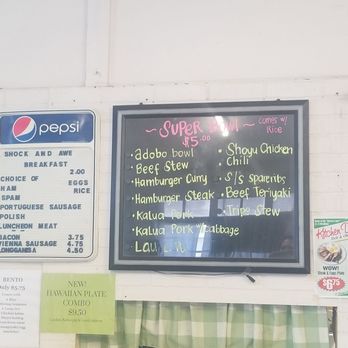 pepsi
SHOCK AND AWE
BREAKFAST
2.00
CHOICE OF EGGS
HAM RICE
SPAM
PORTUGUESE SAUSAGE
POLISH
LUNCHEON MEAT
BACON 3.75
VIENNA SAUSAGE 4.75
LONGGANISA 4.50
~ SUPER BOWL ~
comes w/
Rice
$5.00
• adobo bowl
• Beef Stew
• Hamburger Curry
• Hamburger Steak
• Kalua Pork
• Kalua Pork w/Cabbage
• Lau Lau
• Shoyu Chicken
• Chili
• S/S Spareribs
• Beef Teriyaki
• Tripe Stew
BENTO
Only $5.75
NEW!
HAWAIIAN PLATE
COMBO
$9.50
Kitchen
WOW!
$6.75